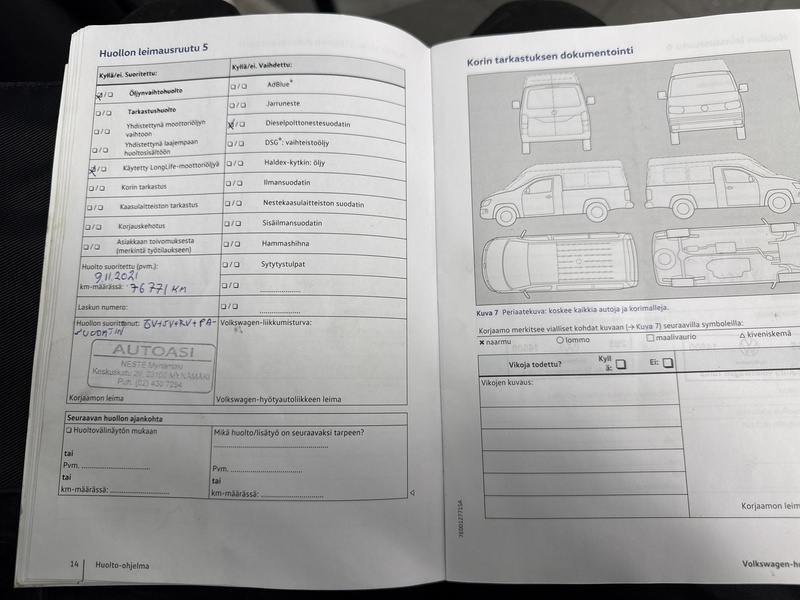 Huollon leimausruutu 5
Kyllä/ei. Suoritettu:
Kyllä/ei. Vaihdettu:
Öljynvaihtohuolto
AdBlue®
Tarkastushuolto
Jarruneste
Yhdistettynä moottoriöljyn vaihtoon
Dieselpolttonestesuodatin
Yhdistettynä laajempaan huoltosisältöön
DSG®: vaihteistoöljy
Käytetty LongLife-moottoriöljyä
Haldex-kytkin: öljy
Korin tarkastus
Ilmansuodatin
Kaasulaitteiston tarkastus
Nestekaasulaitteiston suodatin
Korjauskehotus
Sisäilmansuodatin
Asiakkaan toivomuksesta (merkintä työtilaukseen)
Hammashihna
Huolto suoritettu (pvm.):
9.11.2021
Sytytystulpat
km-määrässä: 76771 KM
Laskun numero:
Huollon suorittanut: ÖV+SV+RV+PA-
SUODATIN
Volkswagen-liikkumisturva:
AUTOASI
NESTE Mynämäki
Keskuskatu 29, 23100 MYNÄMÄKI
Puh. (02) 430 7294
Korjaamon leima
Volkswagen-hyötyautoliikkeen leima
Seuraavan huollon ajankohta
Huoltovälinäytön mukaan
Mikä huolto/lisätyö on seuraavaksi tarpeen?
tai
Pvm.
Pvm.
tai
tai
km-määrässä:
km-määrässä:
14
Huolto-ohjelma
Korin tarkastuksen dokumentointi
Kuva 7 Periaatekuva: koskee kaikkia autoja ja korimalleja.
Korjaamo merkitsee vialliset kohdat kuvaan (→ Kuva 7) seuraavilla symboleilla:
naarmu
lommo
maalivaurio
kiveniskemä
Vikoja todettu?
Kyllä:
Ei:
Vikojen kuvaus:
7E0012771SA
Korjaamon leim
Volkswagen-h